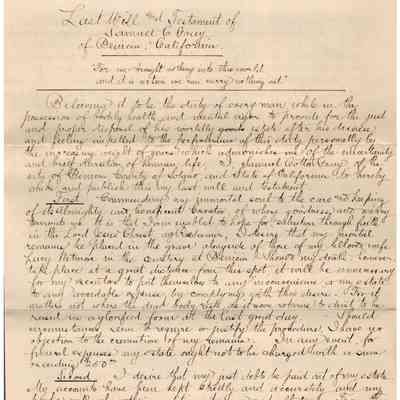 Last Will and Testament of
Samuel C. Gray
of Benicia, California.
"For we brought nothing into this world
and it is certain we can carry nothing out"
Believing it to be the duty of every man while in the
possession of bodily health and mental vigor to provide for the just
and proper disposal of his worldly goods estate after his decease
and feeling impelled to the performance of this duty personally by
the increasing weight of years which admonishes me of the
and brief duration of human life, I Samuel Cotton Gray of the
city of Benicia County of Solano and State of California do hereby
make and publish this my last will and testament.
First. Commending my immortal soul to the care and keeping
of its Almighty and Beneficent Creator of whose goodness and mercy
I am enabled to hope for salvation through faith
in the Lord Jesus Christ our Redeemer, I desire that my mortal
remains be placed in the grave alongside of those of my beloved wife
in the cemetery at Benicia. Should my death however
take place at a great distance from this spot it will be unnecessary
for my executors to put themselves to any inconvenience or my estate
to any expense by complying with this desire. For it
matters not where the dead body rests as it soon returns to dust to be
raised in a glorified form at the last great day. Should
circumstances seem to require or justify the procedure I have no
objection to the cremation of my remains. In any event, for
funeral expenses my estate ought not to be charged with a sum
exceeding
Second. I desire that my just debts be paid out of my estate.
My accounts have been kept strictly and accurately and my